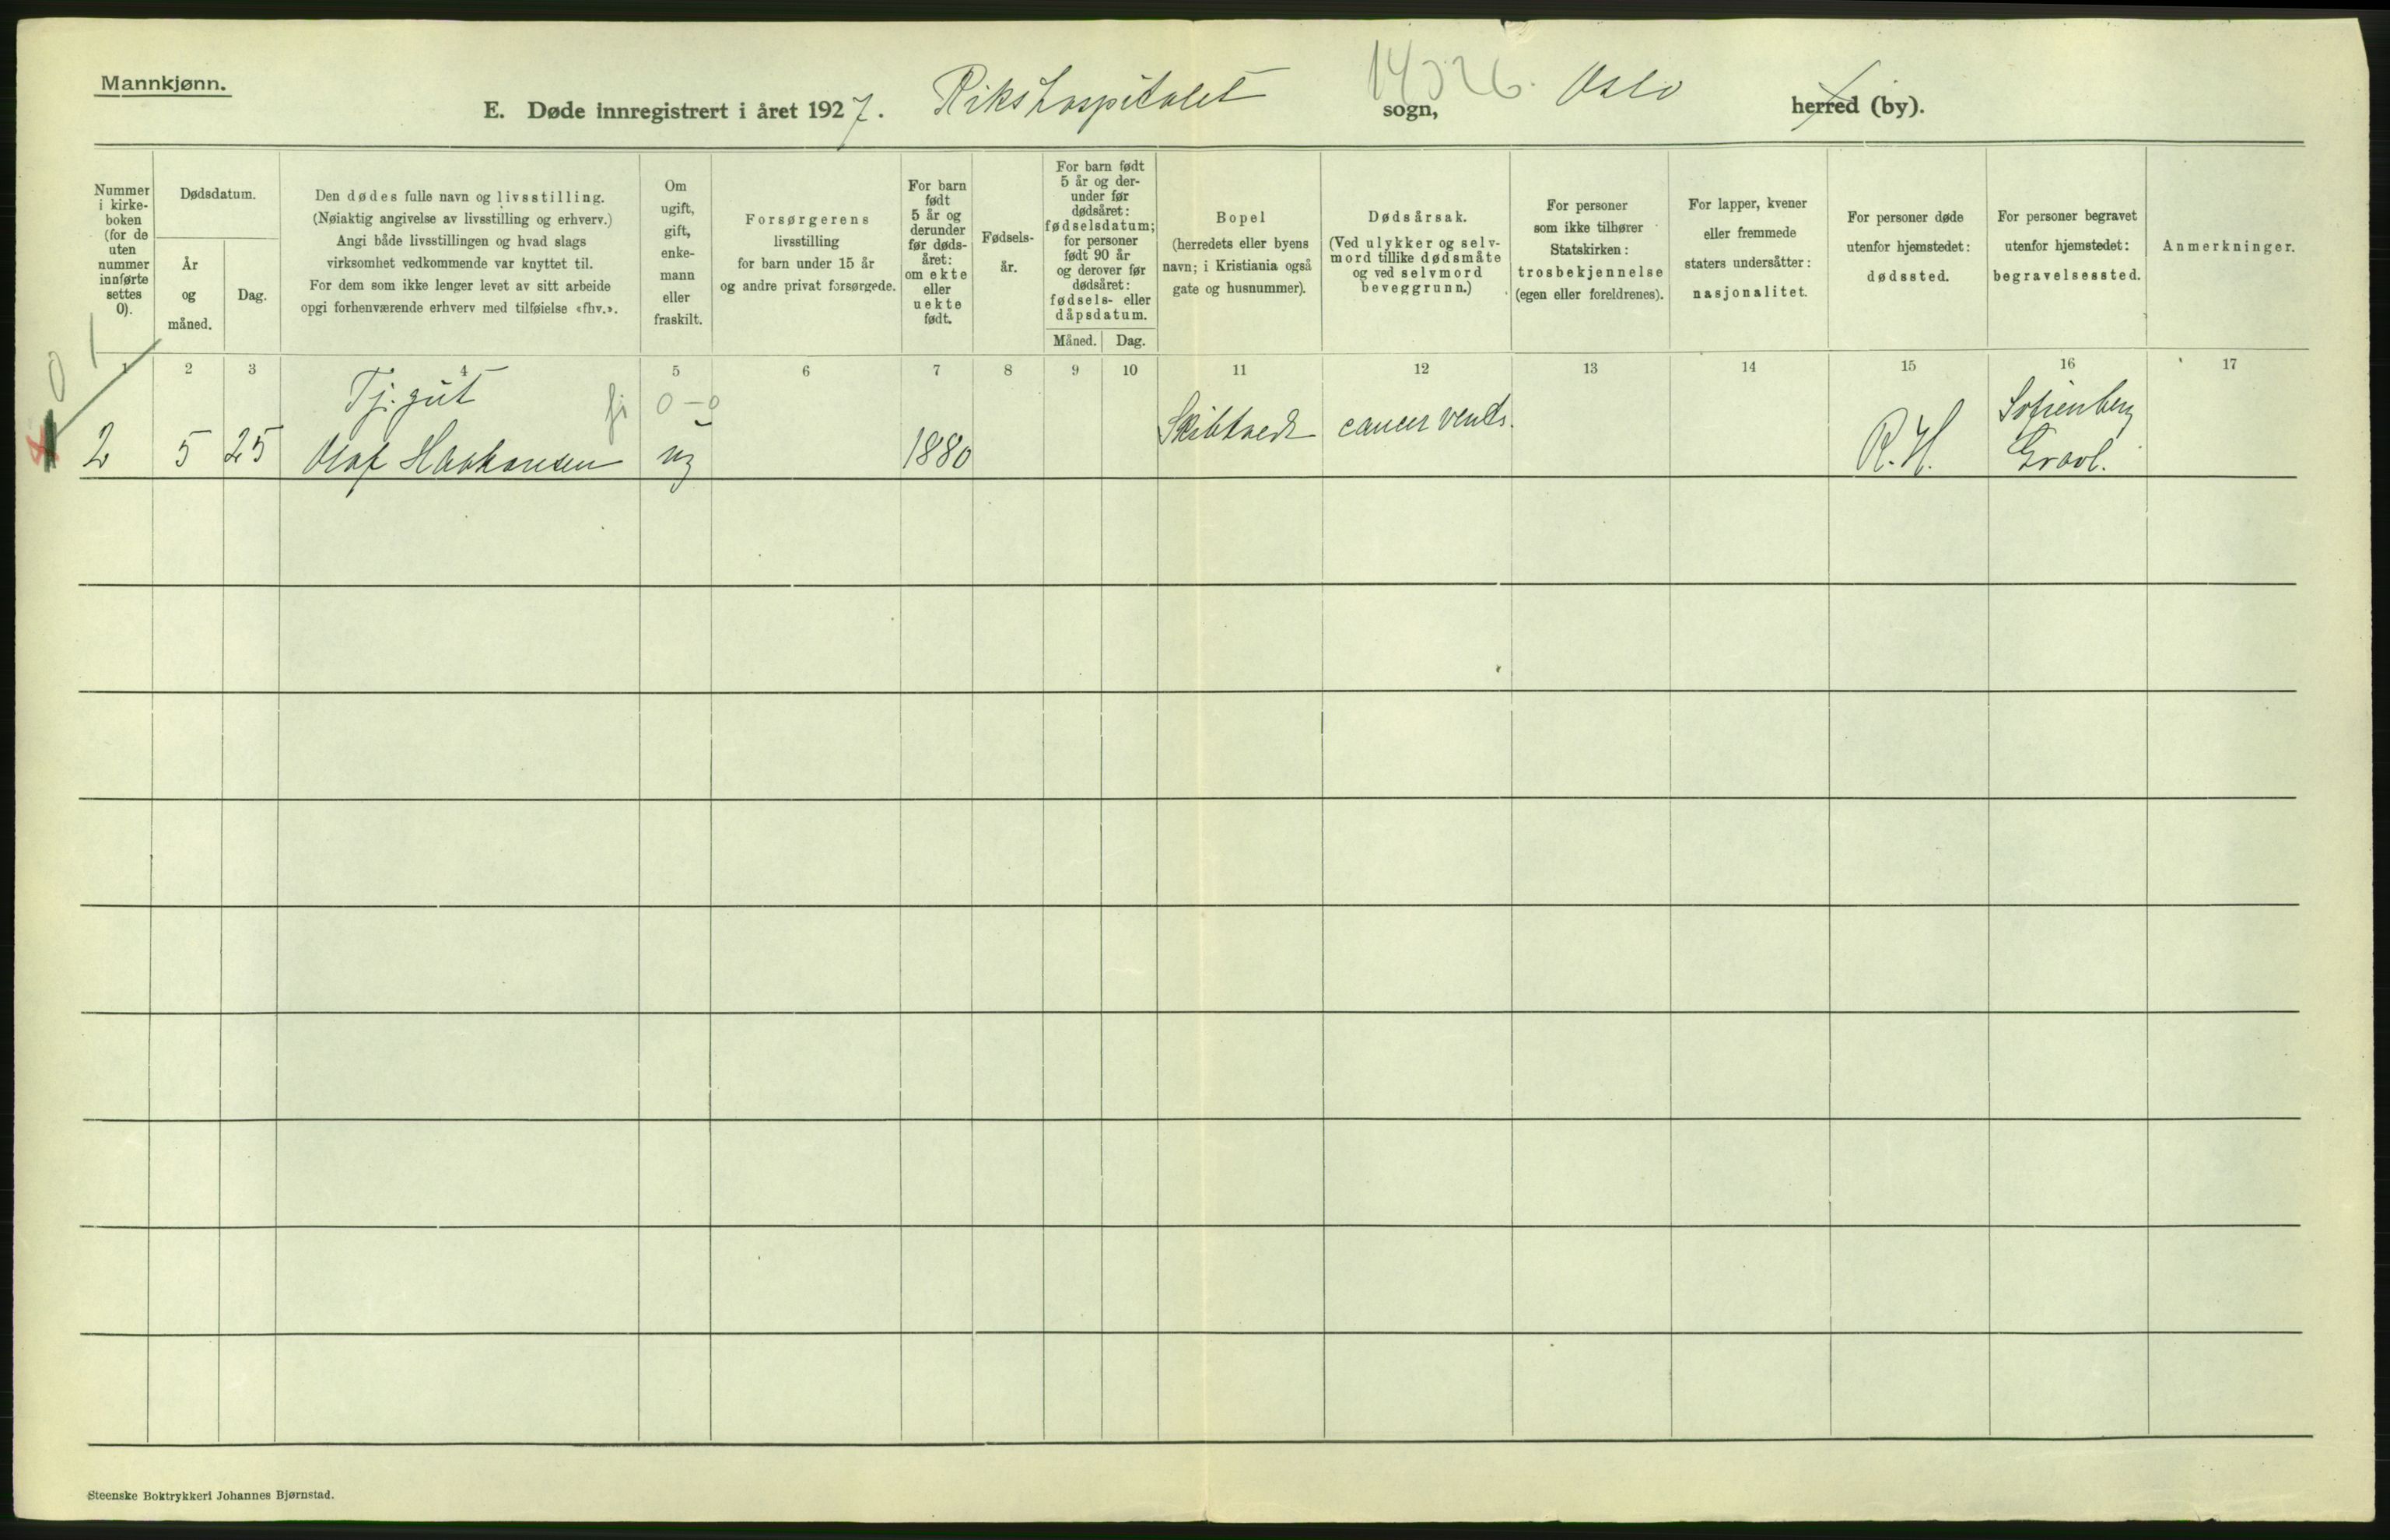 Mannkjønn.
E. Døde innregistrert i året 1927. Rikshospitalet sogn, Oslo herred (by).
14326.
Nummer i kirke-boken (for de uten nummer innførte settes 0).
Dødsdatum.
År og måned.
Dag.
Den dødes fulle navn og livsstilling.
(Nøiaktig angivelse av livsstilling og erhverv.)
Angi både livsstillingen og hvad slags
virksomhet vedkommende var knyttet til.
For dem som ikke lenger levet av sitt arbeide
opgi forhenværende erhverv med tilføielse «fhv.».
Om ugift, gift, enke-mann eller fraskilt.
Forsørgerens
livsstilling
for barn under 15 år
og andre privat forsørgede.
For barn født 5 år og derunder før døds-året: om ekte eller uekte født.
Fødsels-år.
For barn født 5 år og der-under før dødsåret: fødselsdatum; for personer født 90 år og derover før dødsåret: fødsels- eller dåpsdatum.
Måned. Dag.
Bopel
(herredets eller byens
navn; i Kristiania også
gate og husnummer).
Dødsårsak.
(Ved ulykker og selv-
mord tillike dødsmåte
og ved selvmord
beveggrunn.)
For personer
som ikke tilhører
Statskirken:
trosbekjennelse
(egen eller foreldrenes).
For lapper, kvener
eller fremmede
staters undersåtter:
nasjonalitet.
For personer døde
utenfor hjemstedet:
dødssted.
For personer begravet
utenfor hjemstedet:
begravelsessted.
Anmerkninger.
0 1
1 2 3 4 5 6 7 8 9 10 11 12 13 14 15 16 17
Tj. gut 0-0 Skibtvedt cancer ventr. Sofienberg
2 5 25 Olaf Haakonsen ug 1880 R.H. Gravl.
Steenske Boktrykkeri Johannes Bjørnstad.